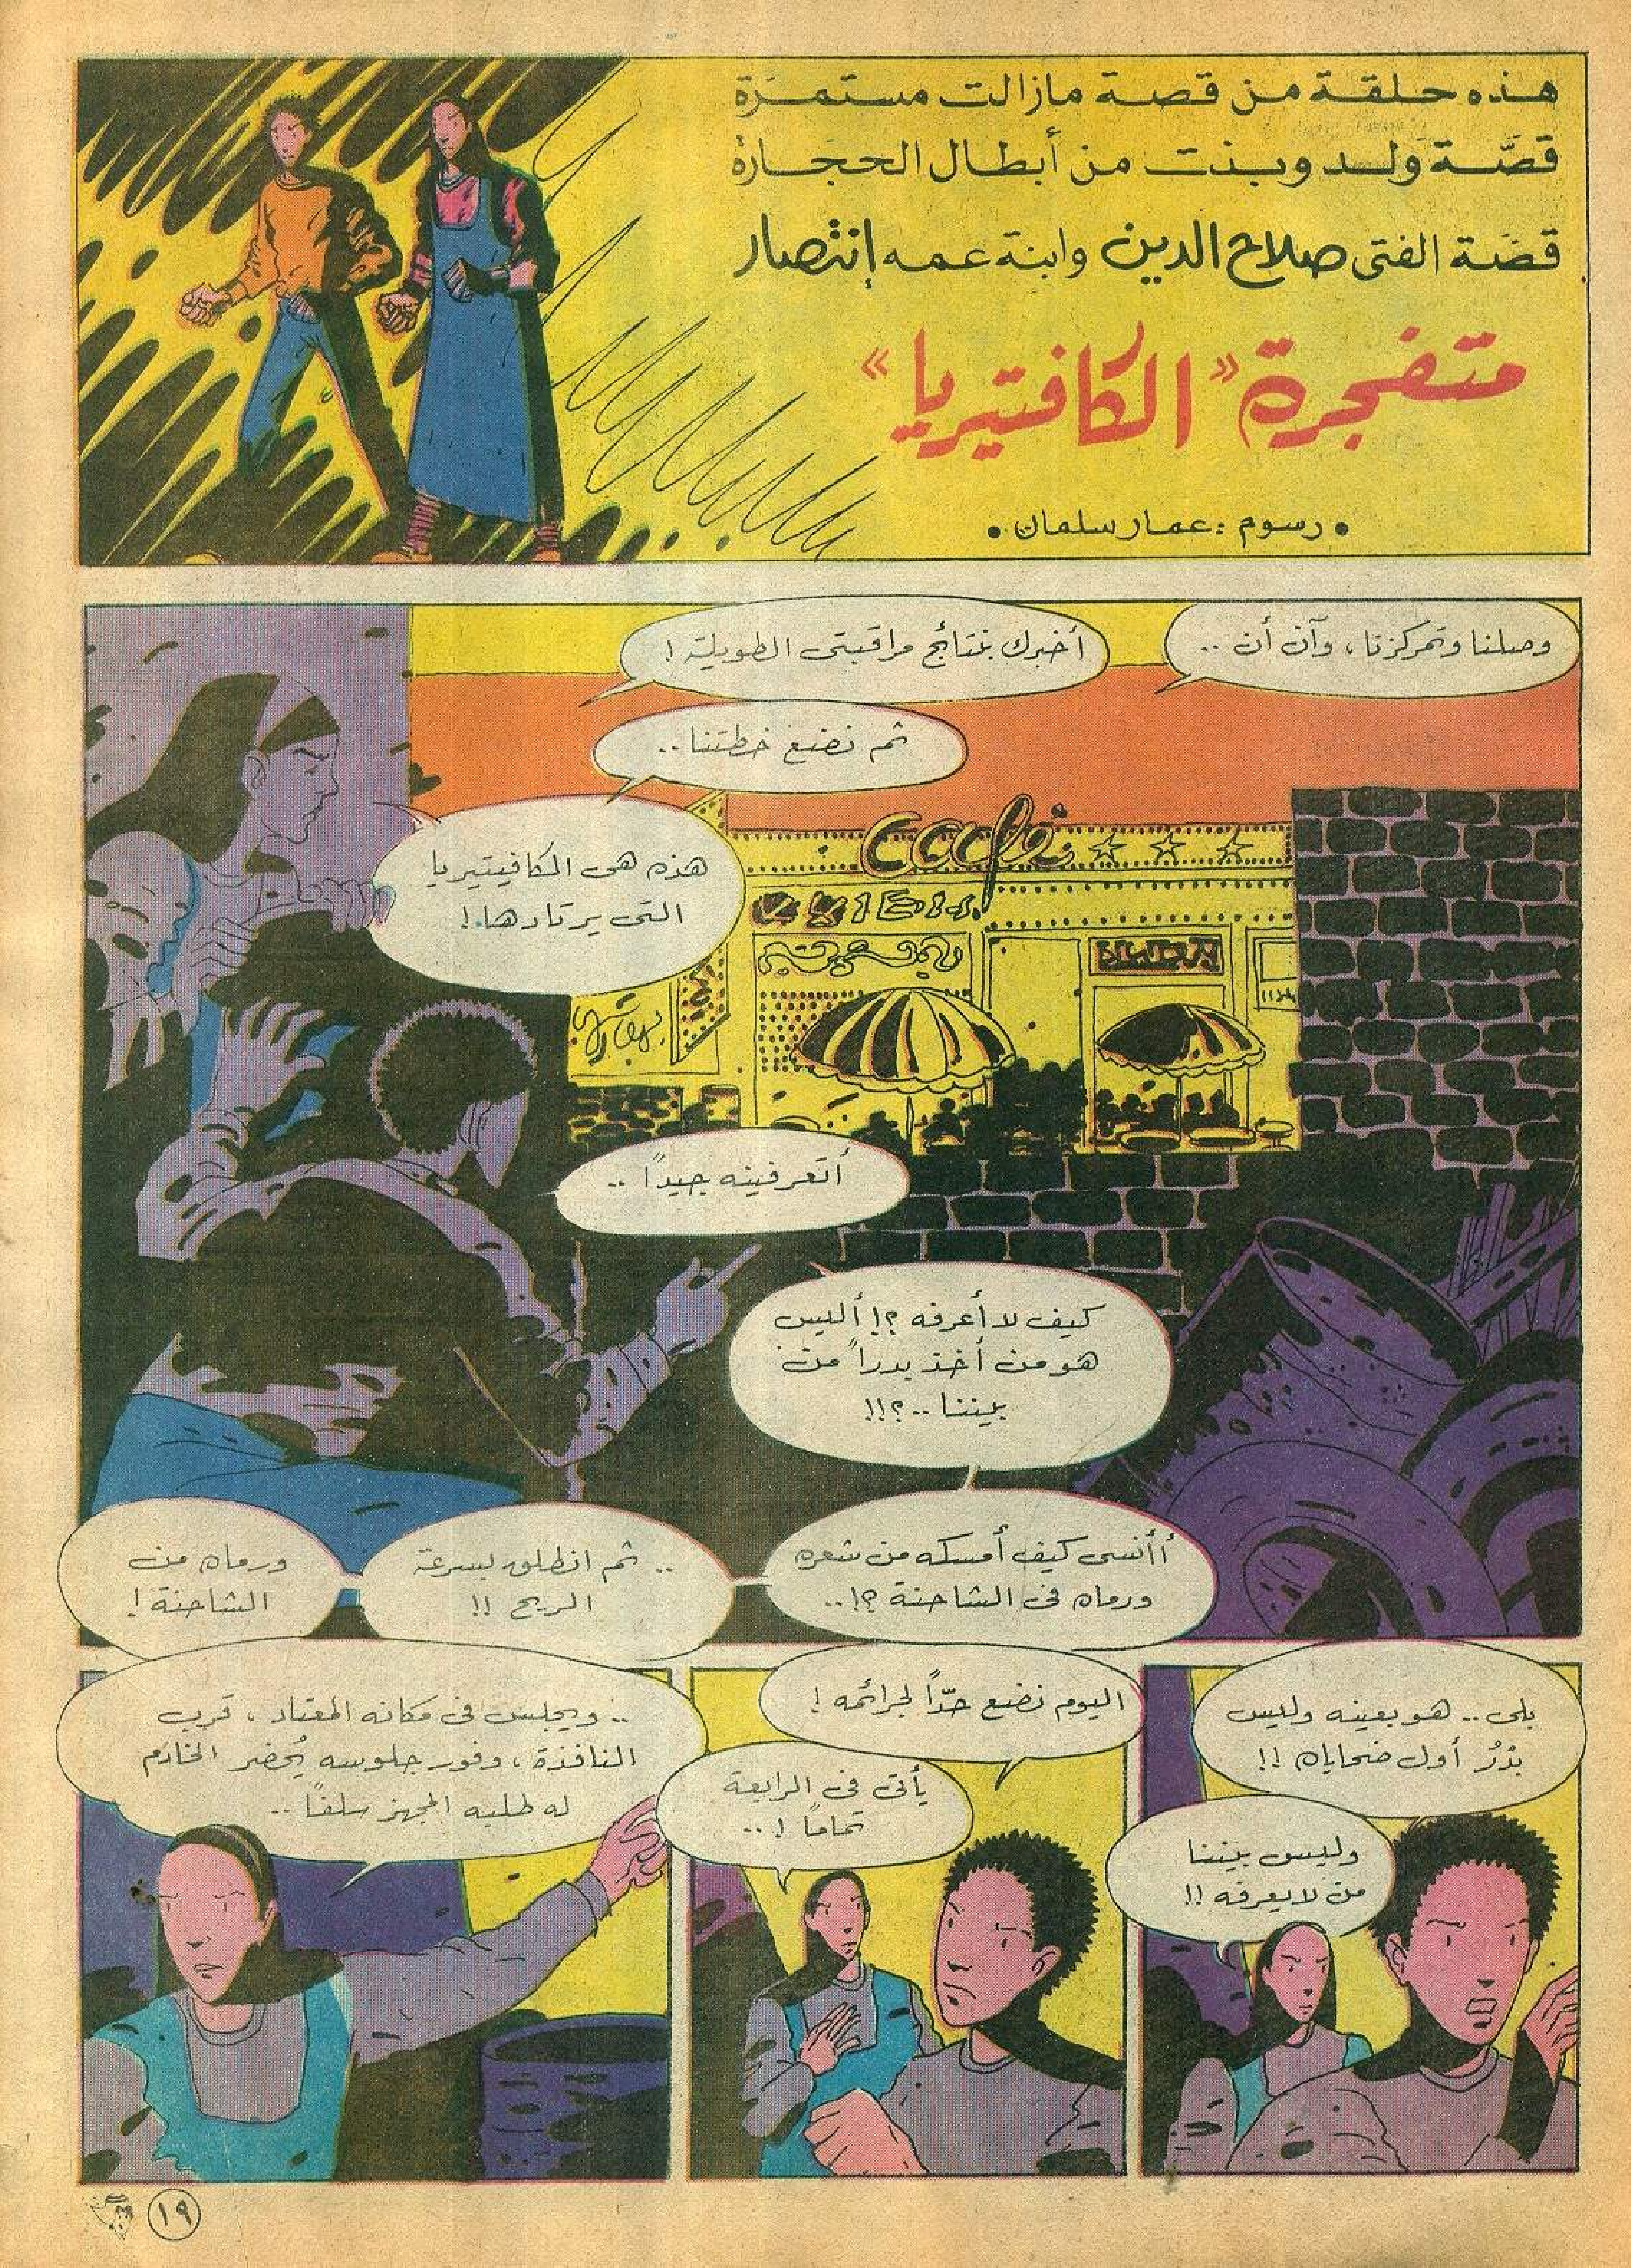 هذه حلقة من قصة مازالت مستمرة
قصّة ولد وبنت من أبطال الحجارة
قصّة الفتى صلاح الدين وابنة عمه إنتصار
متفجرة «الكافتيريا»
• رسوم : عمار سلمان •
وصلنا وتمركزنا، وآن أن ..
أخبرك بنتائج مراقبتى الطويلة !
ثم نضع خطتنا ..
هذه هى الكافيتيريا
التى يرتادها.!
Café
أتعرفينه جيداً ..
كيف لا أعرفه ؟! أليس
هو من أخذ بدراً من
بيننا ..؟!!
أأنسى كيف أمسكه من شعره
ورماه فى الشاحنة ؟!..
.. ثم انطلق بسرعة
الريح !!
ورماه من
الشاحنة !
بلى .. هو بعينه وليس
بدْرُ أول ضحاياه !!
وليس بيننا
من لا يعرفه !!
اليوم نضع حدّاً لجرائمه !
يأتى فى الرابعة
تماماً ! ..
.. ويجلس فى مكانه المعتاد ، قرب
النافذة ، وفور جلوسه يُحضر الخادم
له طلبه المجهز سلفاً ..
١٩